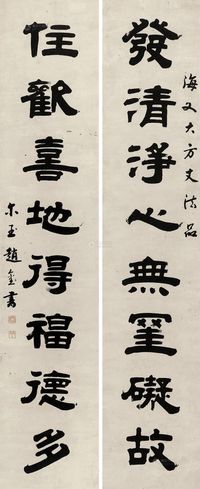 海又大方丈法品
發清淨心無罣礙故
住歡喜地得福德多
尔玉趙
書